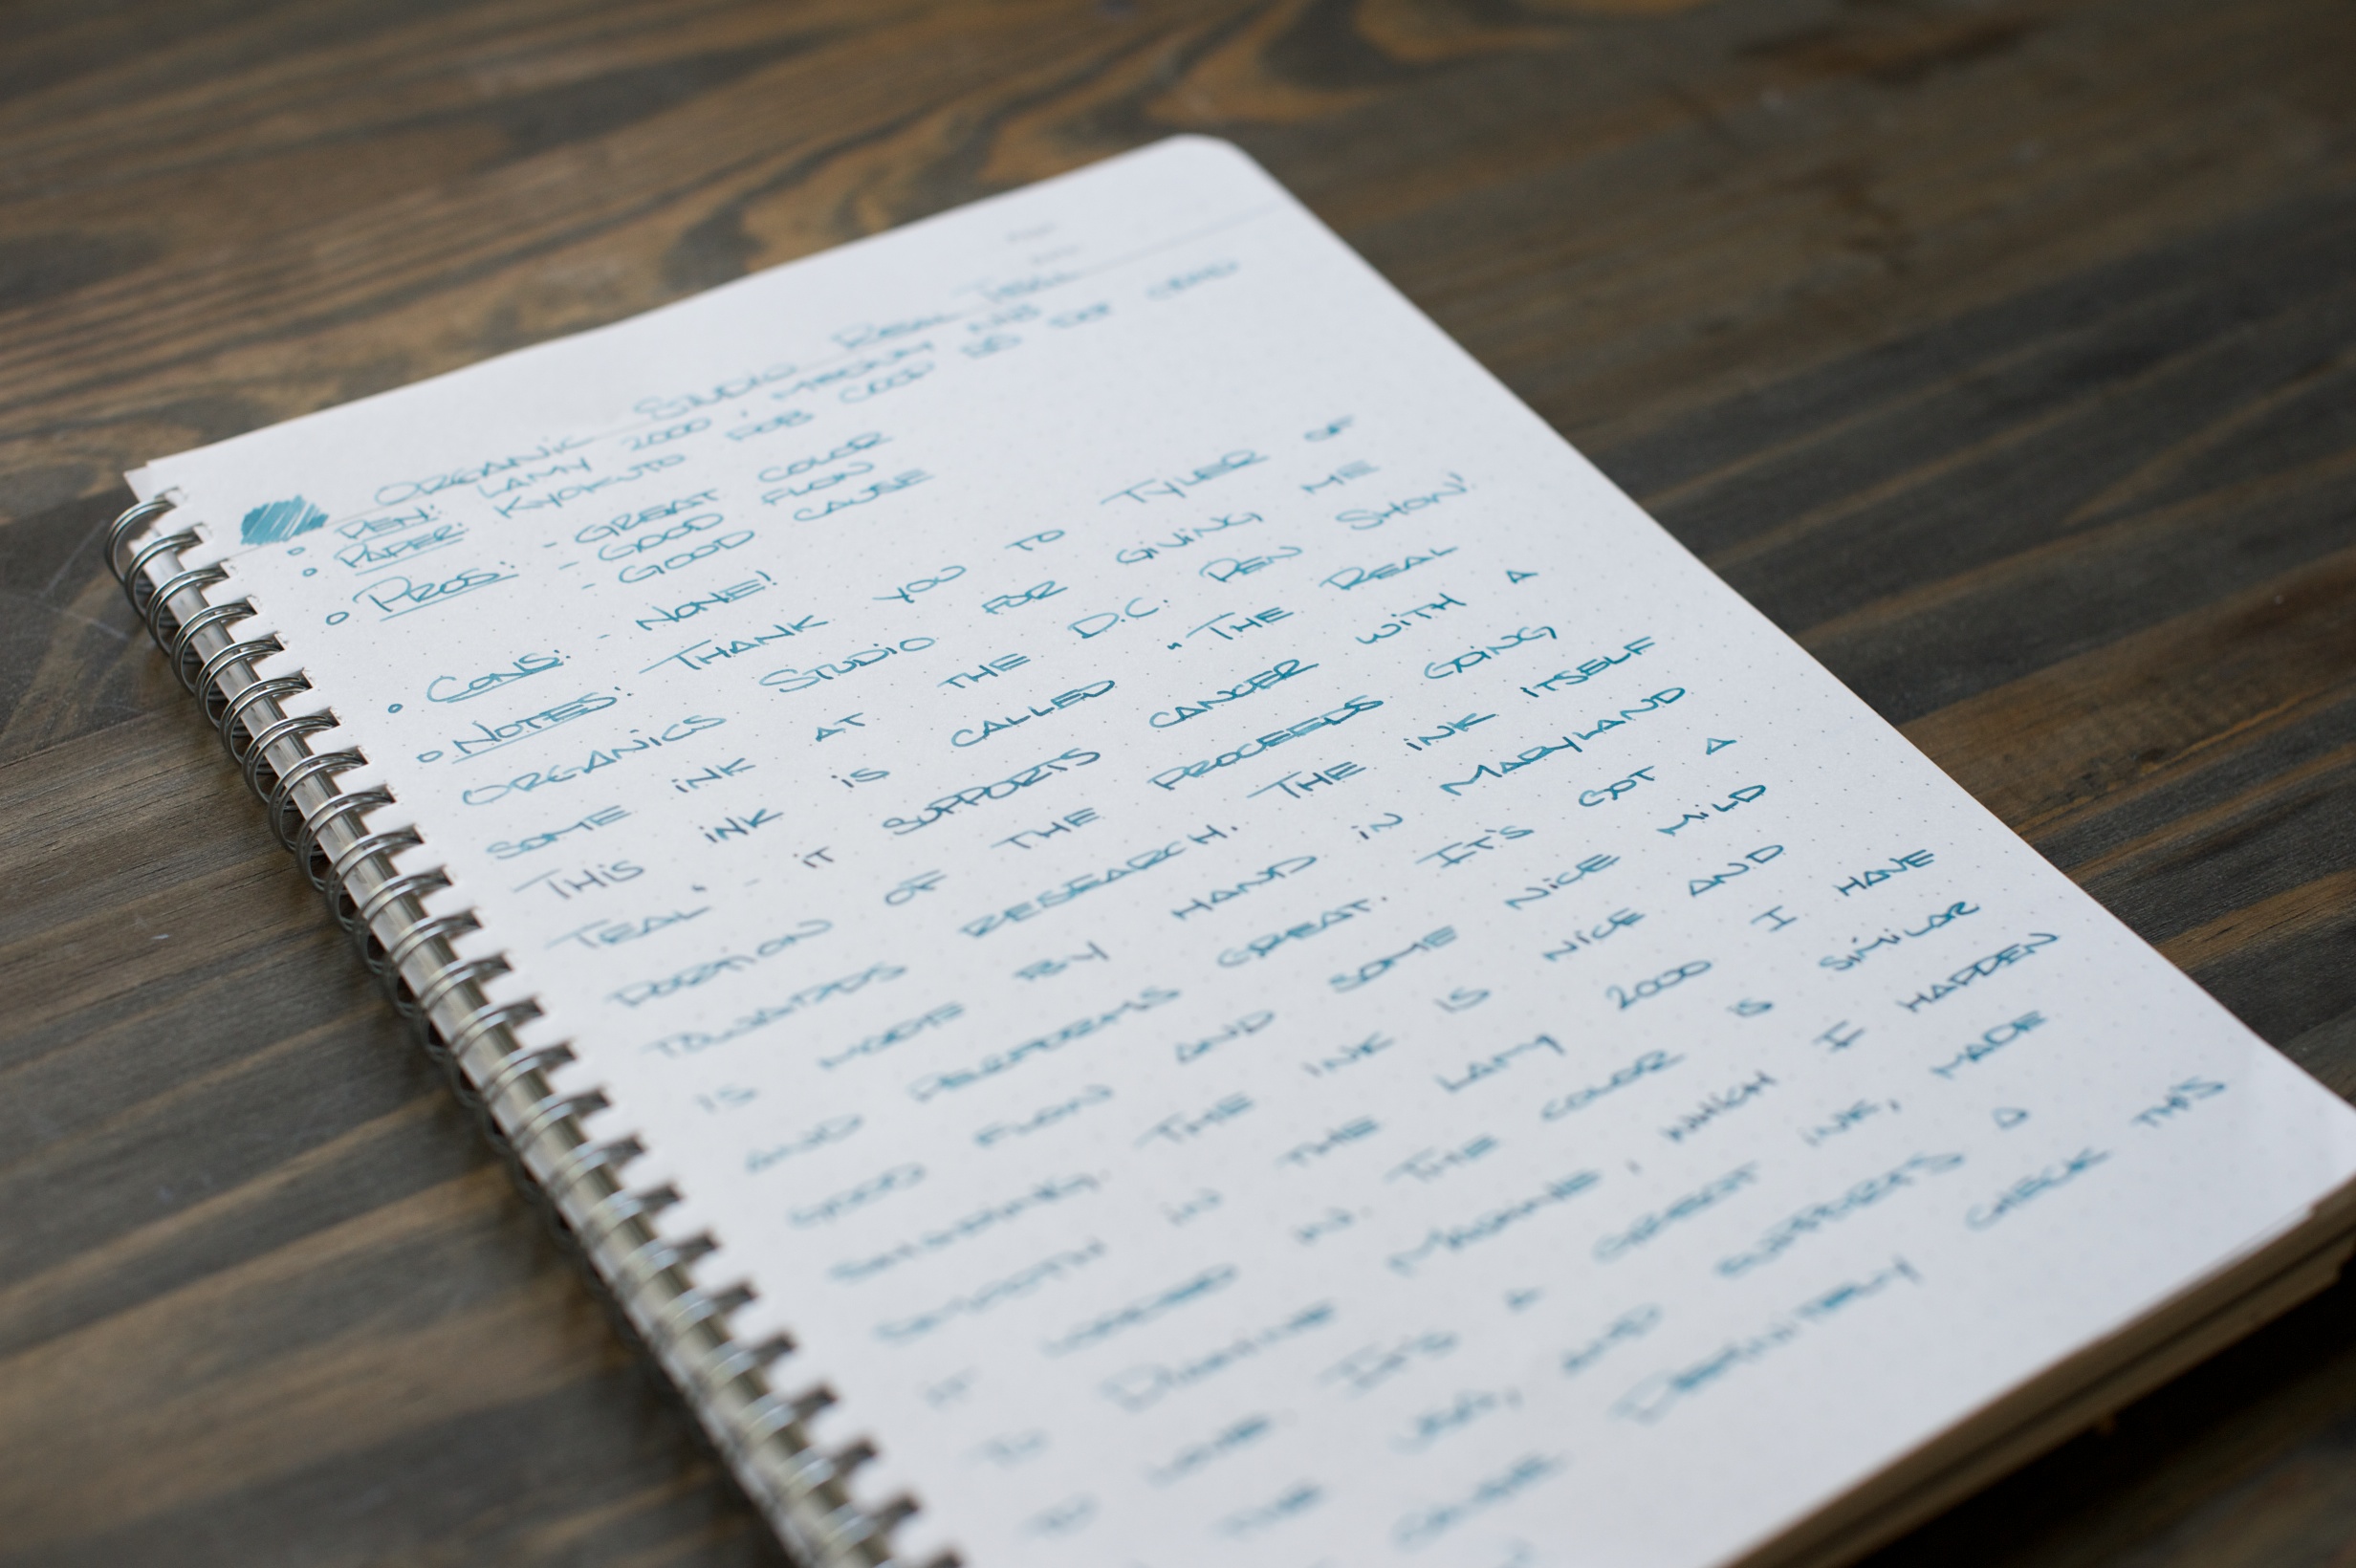 ORGANIC STUDIO REAL TEAL
PEN: LAMY 2000, MEDIUM NIB
PAPER: KYOKUTO FOB COOP B5 DOT GRID
PROS: - GREAT COLOR
- GOOD FLOW
- GOOD CAUSE
CONS: - NONE!
NOTES: THANK YOU TO TYLER OF
ORGANICS STUDIO FOR GIVING ME
SOME INK AT THE D.C. PEN SHOW!
THIS INK IS CALLED "THE REAL
TEAL" - IT SUPPORTS CANCER WITH A
PORTION OF THE PROCEEDS GOING
TOWARDS RESEARCH. THE INK ITSELF
IS MADE BY HAND IN MARYLAND
AND PERFORMS GREAT. IT'S GOT A
GOOD FLOW AND SOME NICE MILD
SHADING. THE INK IS NICE AND
SMOOTH IN THE LAMY 2000 I HAVE
IT LOADED IN. THE COLOR IS SIMILAR
TO DIAMINE MARINE, WHICH I HAPPEN
TO LOVE. IT'S A GREAT INK, MADE
THE USA, AND SUPPORTS A
CAUSE. DEFINITELY CHECK THIS